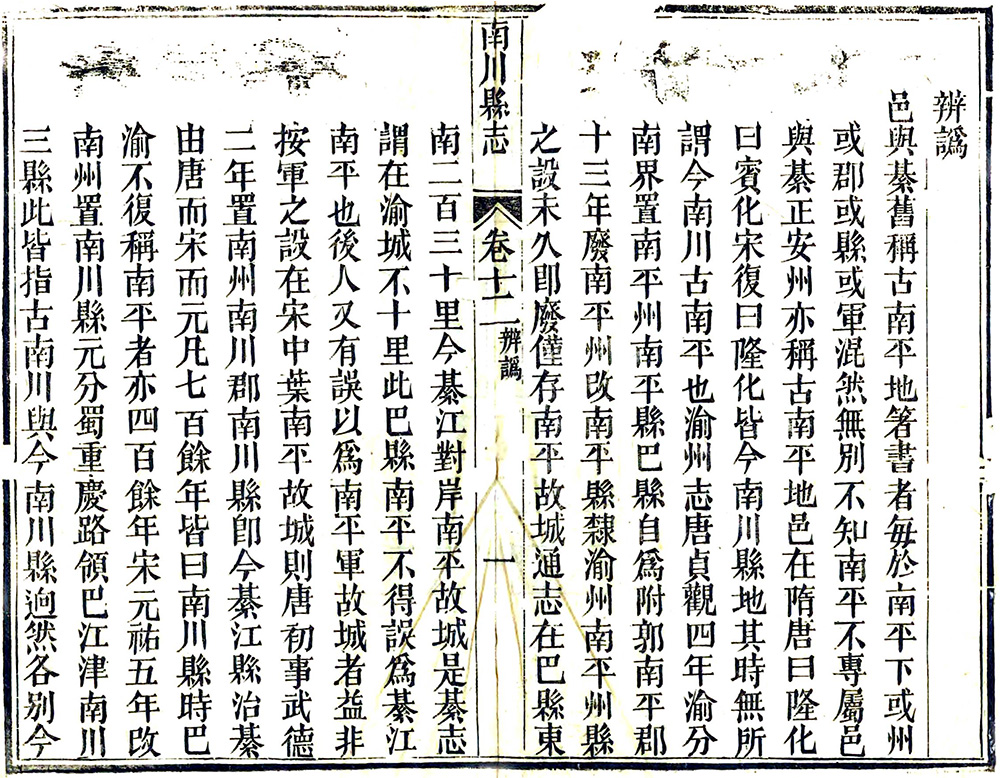 辨譌
邑與綦舊稱古南平地箸書者每於南平下或州
或郡或縣或軍混然無別不知南平不專屬邑
與綦正安州亦稱古南平地邑在隋唐曰隆化
曰賓化宋復曰隆化皆今南川縣地其時無所
謂今南川古南平也渝州志唐貞觀四年渝分
南界置南平州南平縣巴縣自爲附郭南平郡
十三年廢南平州改南平縣隸渝州南平州縣
之設未久卽廢僅存南平故城通志在巴縣東
南川縣志
卷十二
辨譌
一
南二百三十里今綦江對岸南平故城是綦志
謂在渝城不十里此巴縣南平不得誤爲綦江
南平也後人又有誤以爲南平軍故城者益非
按軍之設在宋中葉南平故城則唐初事武德
二年置南州南川郡南川縣卽今綦江縣治綦
由唐而宋而元凡七百餘年皆曰南川縣時巴
渝不復稱南平者亦四百餘年宋元祐五年改
南州置南川縣元分蜀重慶路領巴江津南川
三縣此皆指古南川與今南川縣逈然各別今